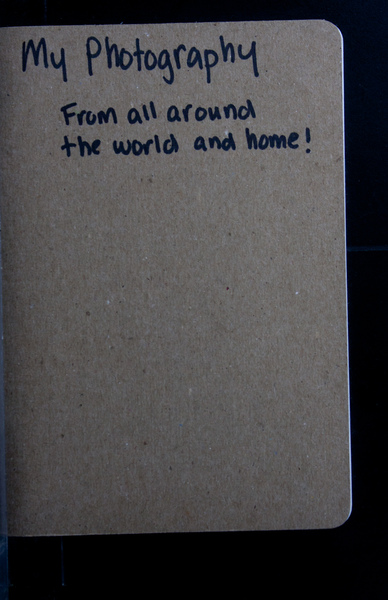 My Photography
From all around
the world and home!